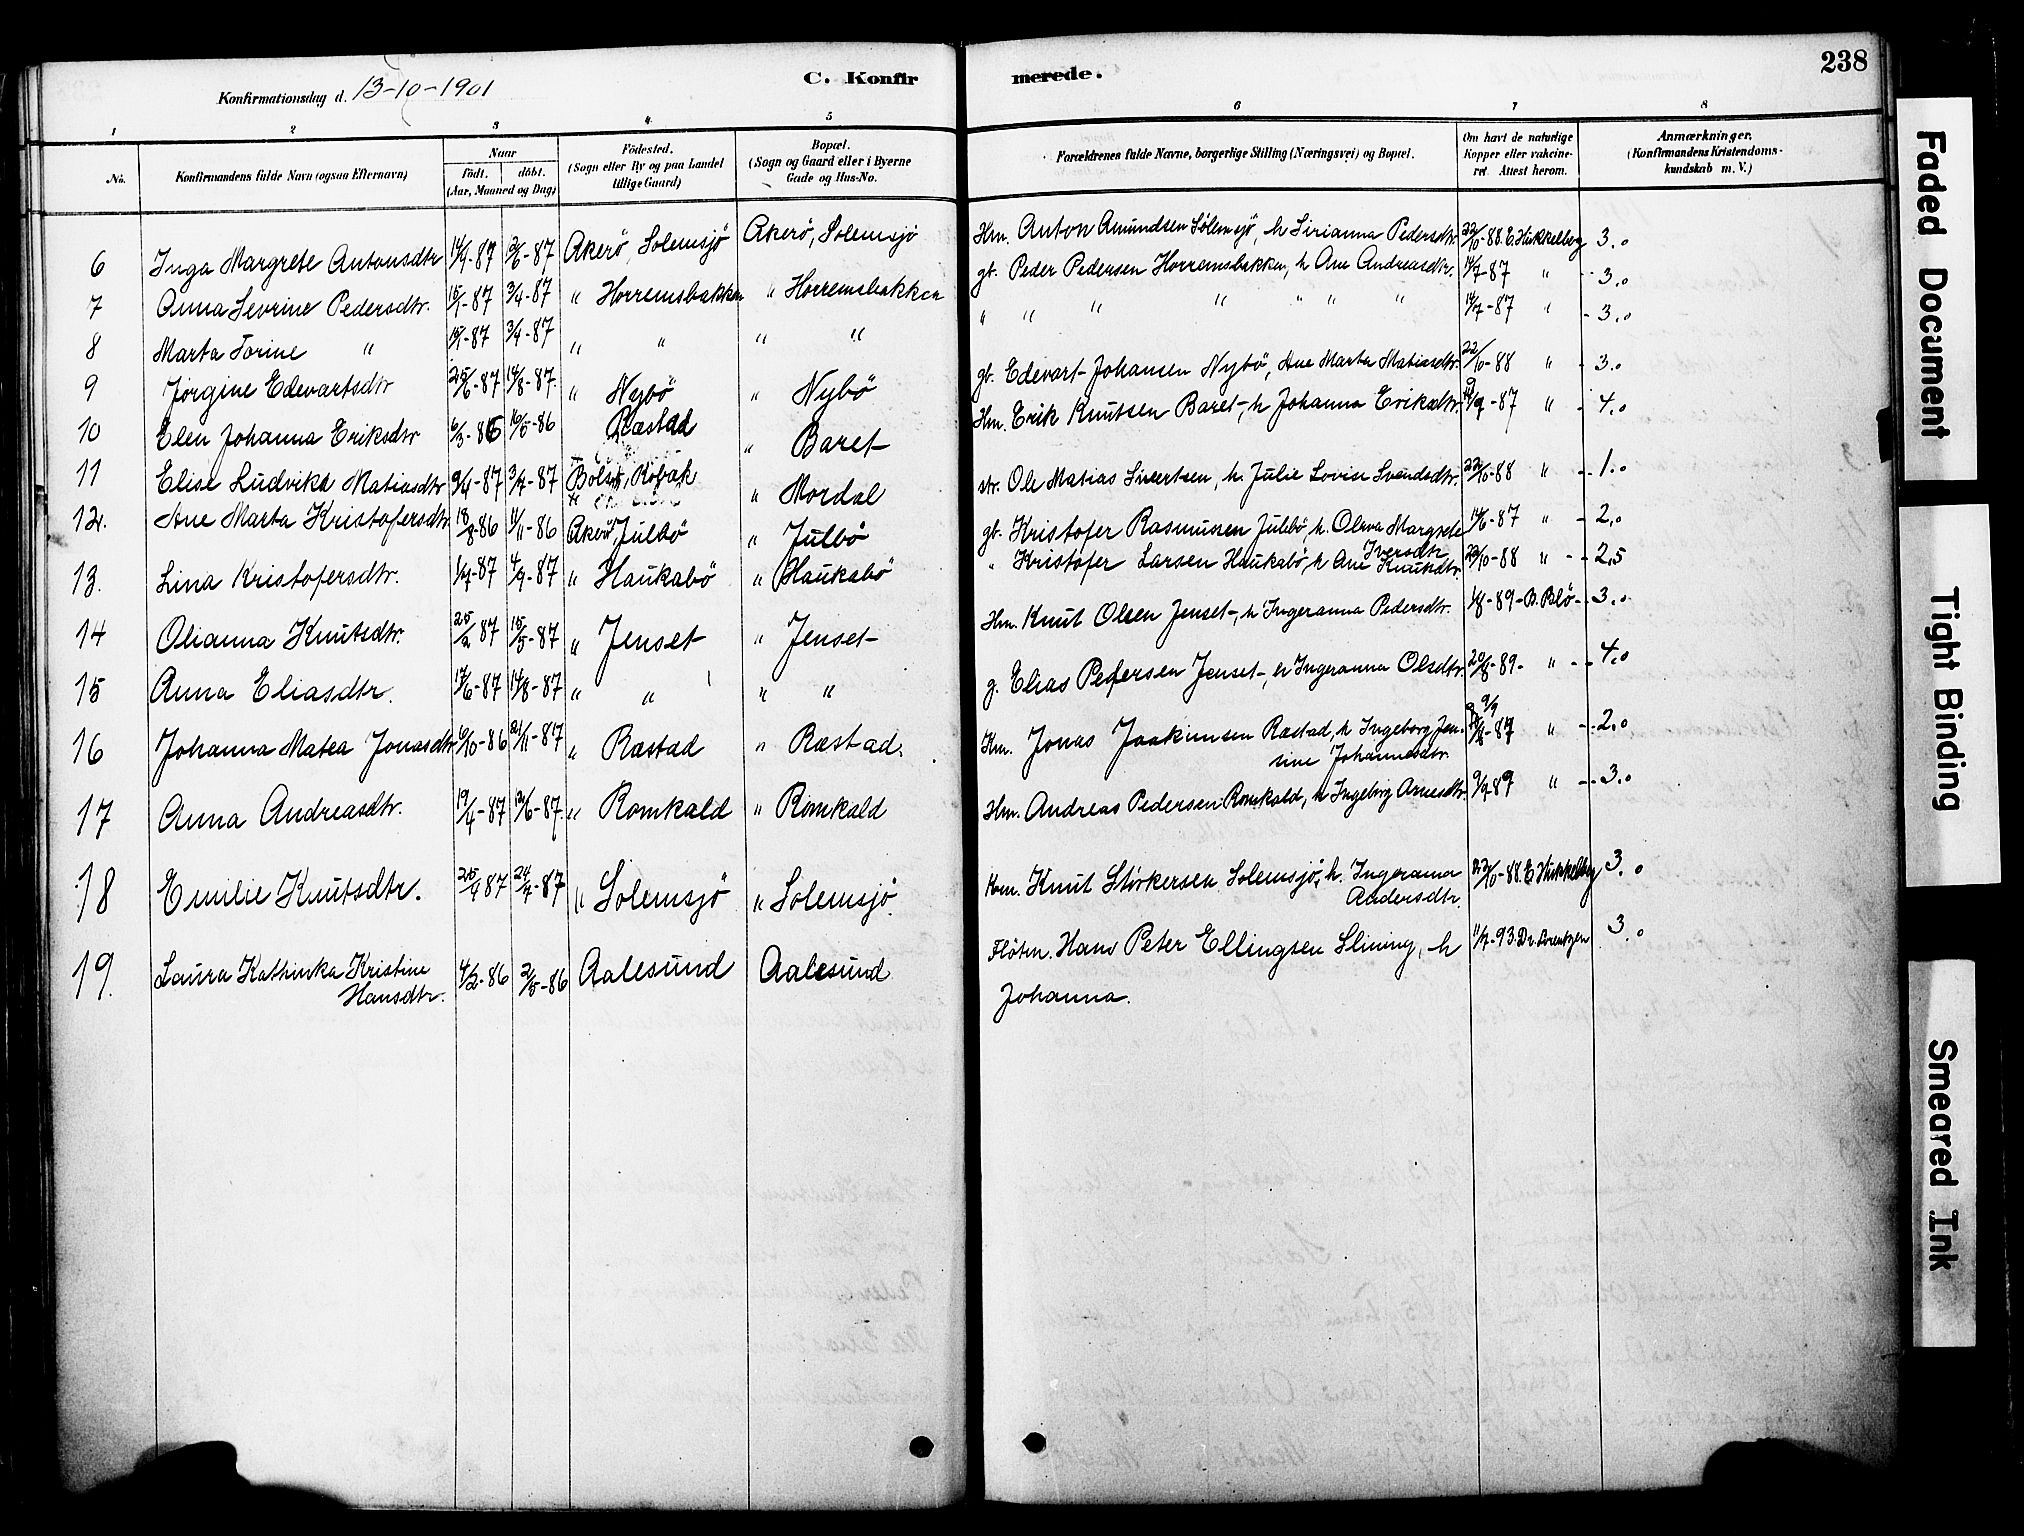 238
C. Konfirmerede.
Konfirmationsdag d. 13-10-1901
1 2 3 4 5 6 7 8
No. Konfirmandens fulde Navn (ogsaa Efternavn) Naar födt. döbt. (Aar, Maaned og Dag) Födested. (Sogn eller By og paa Landet tillige Gaard) Bopæl. (Sogn og Gaard eller i Byerne Gade og Hus-No. Forældrenes fulde Navne, borgerlige Stilling (Næringsvei) og Bopæl. Om havt de naturlige Kopper eller vakcineret Attest herom. Anmærkninger. (Konfirmandens Kristendomskundskab m. V.)
6 Inga Margrete Antonsdtr -87 -87 Akerö, Solemsjö Akerö, Solemsjö Hm. Anton Amundsen Solemsjö, h Sirianna Pedersdtr. 22/10-88. E. Hukkelberg 3.0
7 Anna Sevrine Pedersdtr. 15/1-87 3/4-87 " Horremsbakken " Horremsbakken gb. Peder Pedersen Horremsbakken, h Ane Andreasdtr. 14/7-87 " - 3.0
8 Marta Torine " 15/1-87 3/4-87 " " " " " " " " " " 14/7-87 " - 3.0
9 Jørgine Edevartsdtr 25/6-87 14/8-87. " Nybö " Nybö gb. Edevart Johansen Nybö, Ane Marta Matiasdtr. 22/10-88 " - 3.0
10 Elen Johanna Eriksdtr 6/3-86 16/5-86 Ræstad " Baret Hm. Erik Knutsen Baret, h Johanna Eriksdtr. -87 " - 4.0
11 Elise Ludvika Matiasdtr 9/4-87 3/7-87 Bolsö, Röbak " Mordal str. Ole Matias Sivertsen, h. Julie Lovise Svendsdtr. 22/10-88 " - 1.0
12. Ane Marta Kristofersdtr 18/8-86 11/11-86 Akerö, Julbö " Julbö gb. Kristofer Rasmussen Julbö, h. Oleva Margrete Iversdtr 14/6-87 " - 2.0
13. Lina Kristofersdtr. -87 4/9-87 " Haukabö " Haukabö " Kristofer Larsen Haukabö, h Ane Knutsdtr. 22/10-88 " - 2,5
14 Olianna Knutsdtr. 25/2 87 15/5-87 " Jenset " Jenset Hm. Knut Olsen Jenset, h Ingeranna Pedersdtr. 1/8-89 - B. Blö - 3.0
15 Anna Eliasdtr. 17/6-87 14/8-87 " " " " g. Elias Pedersen Jenset, h Ingeranna Olsdtr. 20/8-89- " - 4.0
16 Johanna Matea Jonasdtr 6/10-86 21/11-87 " Ræstad " Ræstad. Hm. Jonas Joakimsen Ræstad, h Ingeborg Jensine Johannesdtr. 9/9 -87 " - 2.0
17 Anna Andreasdtr. 19/4-87 12/6-87. " Romkald " Romkald Hm. Andreas Pedersen Romkald, h Ingeborg Arnesdtr. 9/9 89 " - 3.0
18 Emilie Knutsdtr. 25/4 87 24/7-87 " Solemsjö " Solemsjö. Knut Störkersen Solemsjö, h. Ingeranna Andersdtr. 22/10-88. E Hukkelberg 3.0
19. Laura Kathinka Kristine Hansdtr. 4/2-86 2/5-86 Aalesund Aalesund Fløtm. Hans Peter Ellingsen Slining, h Johanna. 11/7-93. Dr. Lorentzen 3.0
Faded Document
Tight Binding
Smeared Ink